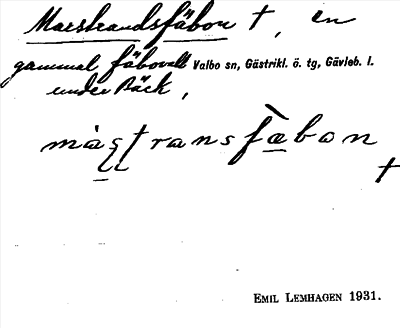 Marstrandsfäbon †, en
gammal fäbovall Valbo sn, Gästrikl. ö. tg, Gävleb. l.
under Bäck,
màștransfæ̀bon
†
EMIL LEMHAGEN 1931.